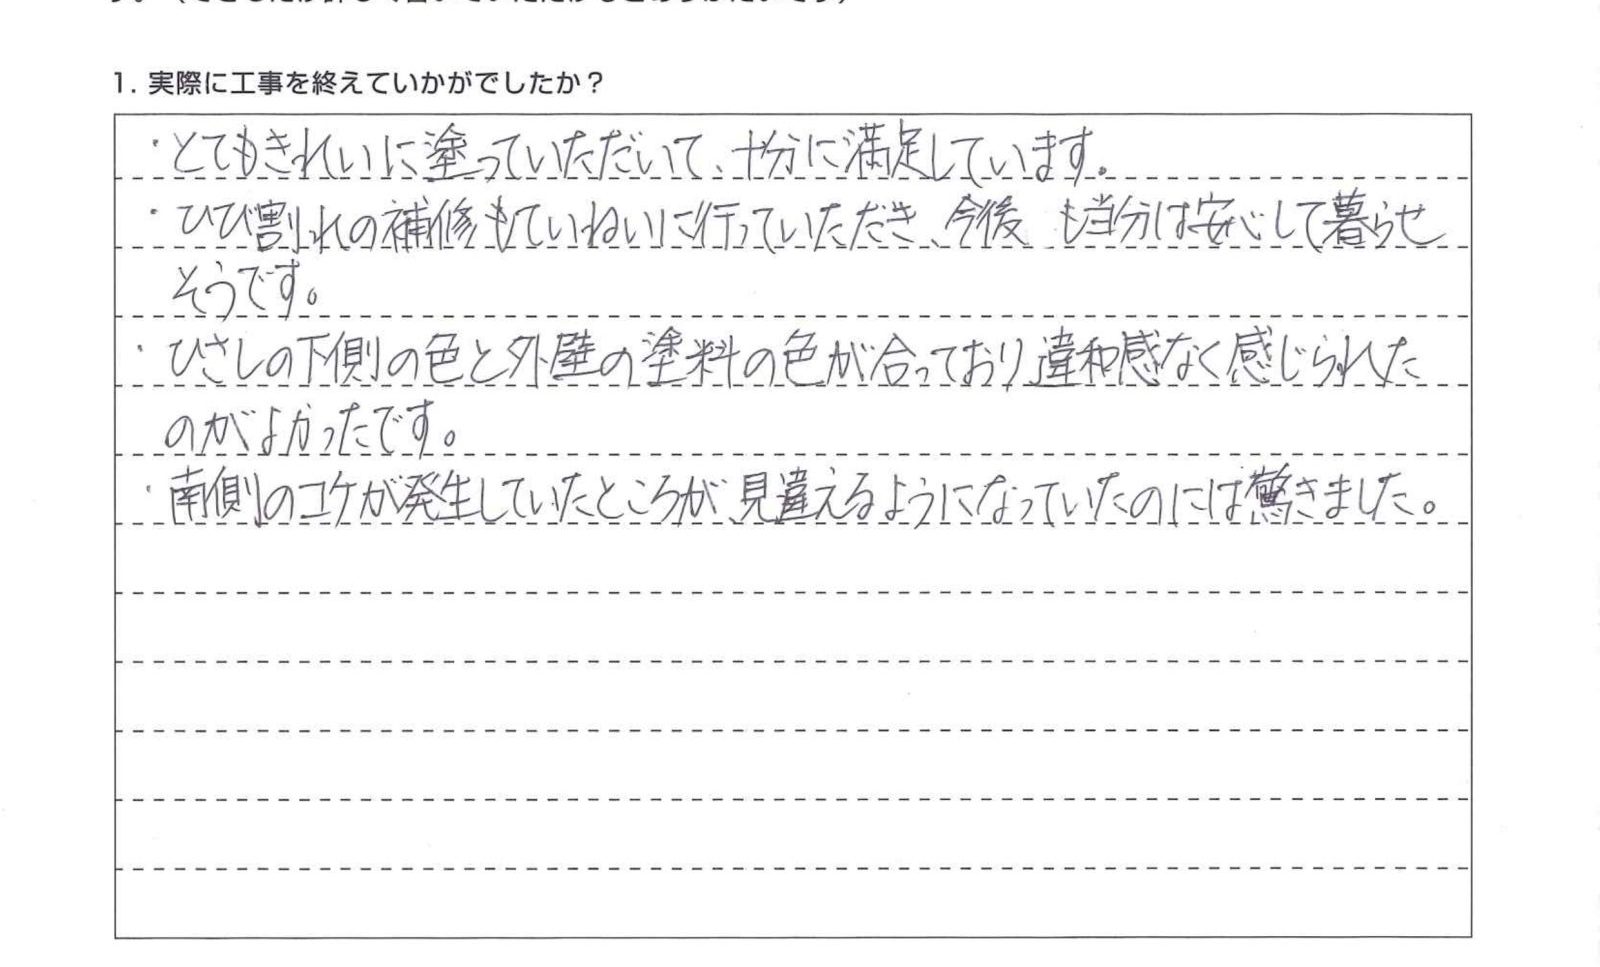 1. 実際に工事を終えていかがでしたか？
・とてもきれいに塗っていただいて、十分に満足しています。
・ひび割れの補修もていねいに行っていただき、今後も当分は安心して暮らせ
そうです。
・ひさしの下側の色と外壁の塗料の色が合っており違和感なく感じられた
のがよかったです。
・南側のコケが発生していたところが、見違えるようになっていたのには驚きました。